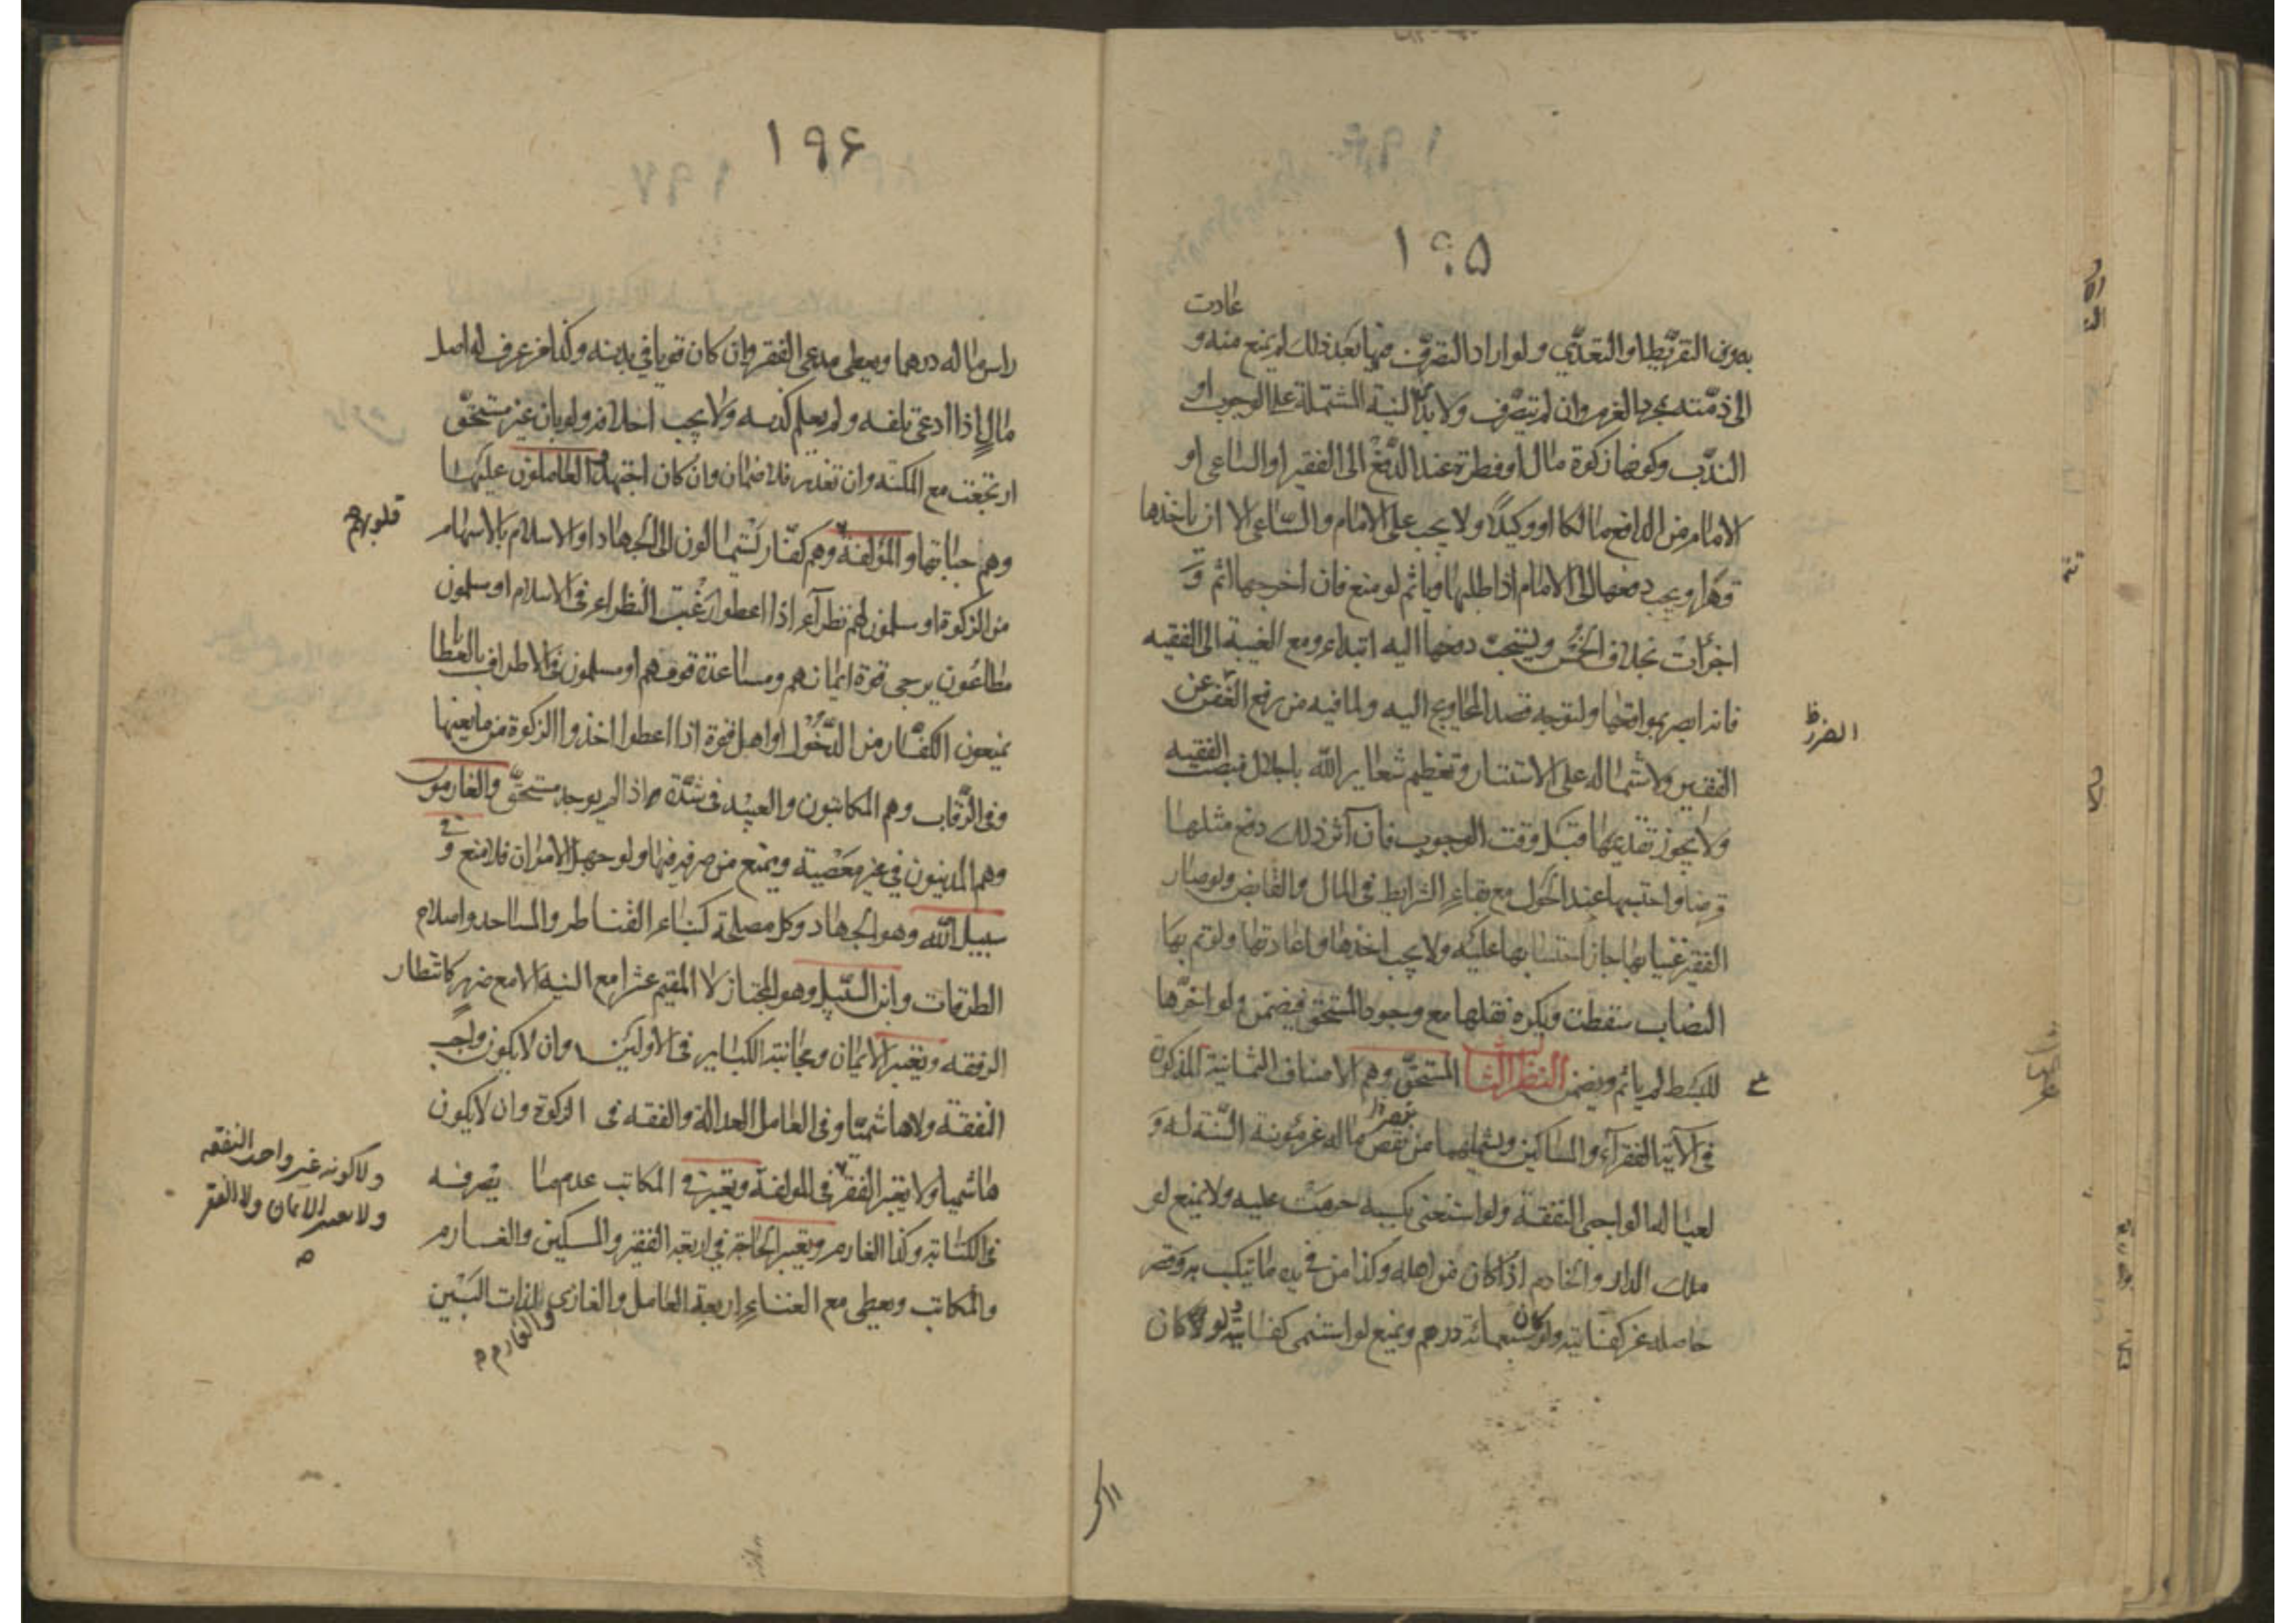 ١٩٥
عادت
بدون التفريط او التعدّي ولو اراد التصرّف فيها بعد ذلك لم يمنع منه و
الى ذمّته بمجرد العزم وان لم يتصرّف ولا بدّ من النية المشتملة على الوجوب او
الندب وكونها زكوة مال او فطرة عند الدفع الى الفقير او الساعى او
الامام من الدافع مالكا او وكيلا ولا يجب على الامام والسّاعى الا ان ياخذها
قهرا ويجب دفعها الى الامام اذا طلبها وياثم لو منع فان اخرجها اثم و
اجزأت بخلاف الخمس ويستحبّ دفعها اليه ابتداء ومع الغيبة الى الفقيه
فانه ابصر بمواقعها ولتوجه قصد المحاويج اليه ولما فيه من رفع النقص عن
الضرر ظ
الفقير ولاشتماله على الاستتار وتعظيم شعاير الله باجلال منصب الفقيه
ولا يجوز تقديمها قبل وقت الوجوب فان آثر ذلك دفع مثلها
قرضا واحتسبها عند الحول مع بقاء الشرايط فى المال والقابض ولو صار
الفقير غنيا بها جاز احتسابها عليه ولا يجب اخذها واعادتها ولو تم بها
النصاب سقطت ويكره نقلها مع وجود المستحق فيضمن ولو اخّرها
للبسط لم ياثم ويضمن النظر الثالث المستحقّ وهم الاصناف الثمانية المذكورة
فى الآية الفقرآء والمساكين ويشملهما من نقص ماله عن مؤنة السّنة له و
لعياله الواجبى النفقة ولو استغنى بكسبه حرمت عليه ولا يمنع لو
ملك الدار والخادم اذا كان من اهله وكذا من فى يده ما يتكسب به وقصر
حاصله عن كفايته ولو كان سبعمائة درهم ويمنع لو استنمى كفايته ولو كان
١٩۶
راس ماله درهما ويعطى مدعى الفقر وان كان قويا فى بدنه وكذا من عرف له اصل
مال اذا ادعى تلفه ولم يعلم كذبه ولا يجب احلافه ولو بان غير مستحقّ
ارتجعت مع المكنة وان تعذر فلا ضمان وان كان اجتهد والعاملون عليها
وهم جباتها والمؤلفة وهم كفّار يستمالون الى الجهاد او الاسلام بالاسهام
قلوبهم
من الزكوة او مسلمون لهم نظرآء اذا اعطوا رغب النظراء فى الاسلام او مسلمون
مطاعون يرجى قوة ايمانهم ومساعدة قومهم او مسلمون فى الاطراف بالعطا
يمنعون الكفّار من الدّخول او اهل قوة اذا اعطوا اخذوا الزكوة من مانعيها
وفى الرّقاب وهم المكاتبون والعبيد فى شدّة واذا لم يوجد مستحقّ والغارمون
وهم المدينون فى غير معصية ويمنع من صرفه فيها ولو جهل الامران فلا منع و فى
سبيل الله وهو الجهاد وكل مصلحة كبناء القناطر والمساجد واصلاح
الطرقات وابن السّبيل وهو المجتاز لا المقيم عشرا مع النية الا مع ضرر كانتظار
الرفقة ويعتبر الايمان ومجانبة الكباير فى الاولين وان لا يكون واجب
النفقة ولا هاشميّا وفى العامل العدالة والفقه فى الزكوة وان لا يكون
هاشميا ولا يعتبر الفقر فى المولفة ويعتبر فى المكاتب عدم ما يصرفه
ولا كونه غير واجب النفقه
ولا يعتبر الايمان ولا الفقر
فى الكتابة وكذا الغارم ويعتبر الحاجة فى اربعة الفقير والمسكين والغارم
والمكاتب ويعطى مع الغناء اربعة العامل والغازى والغارم لذات البين